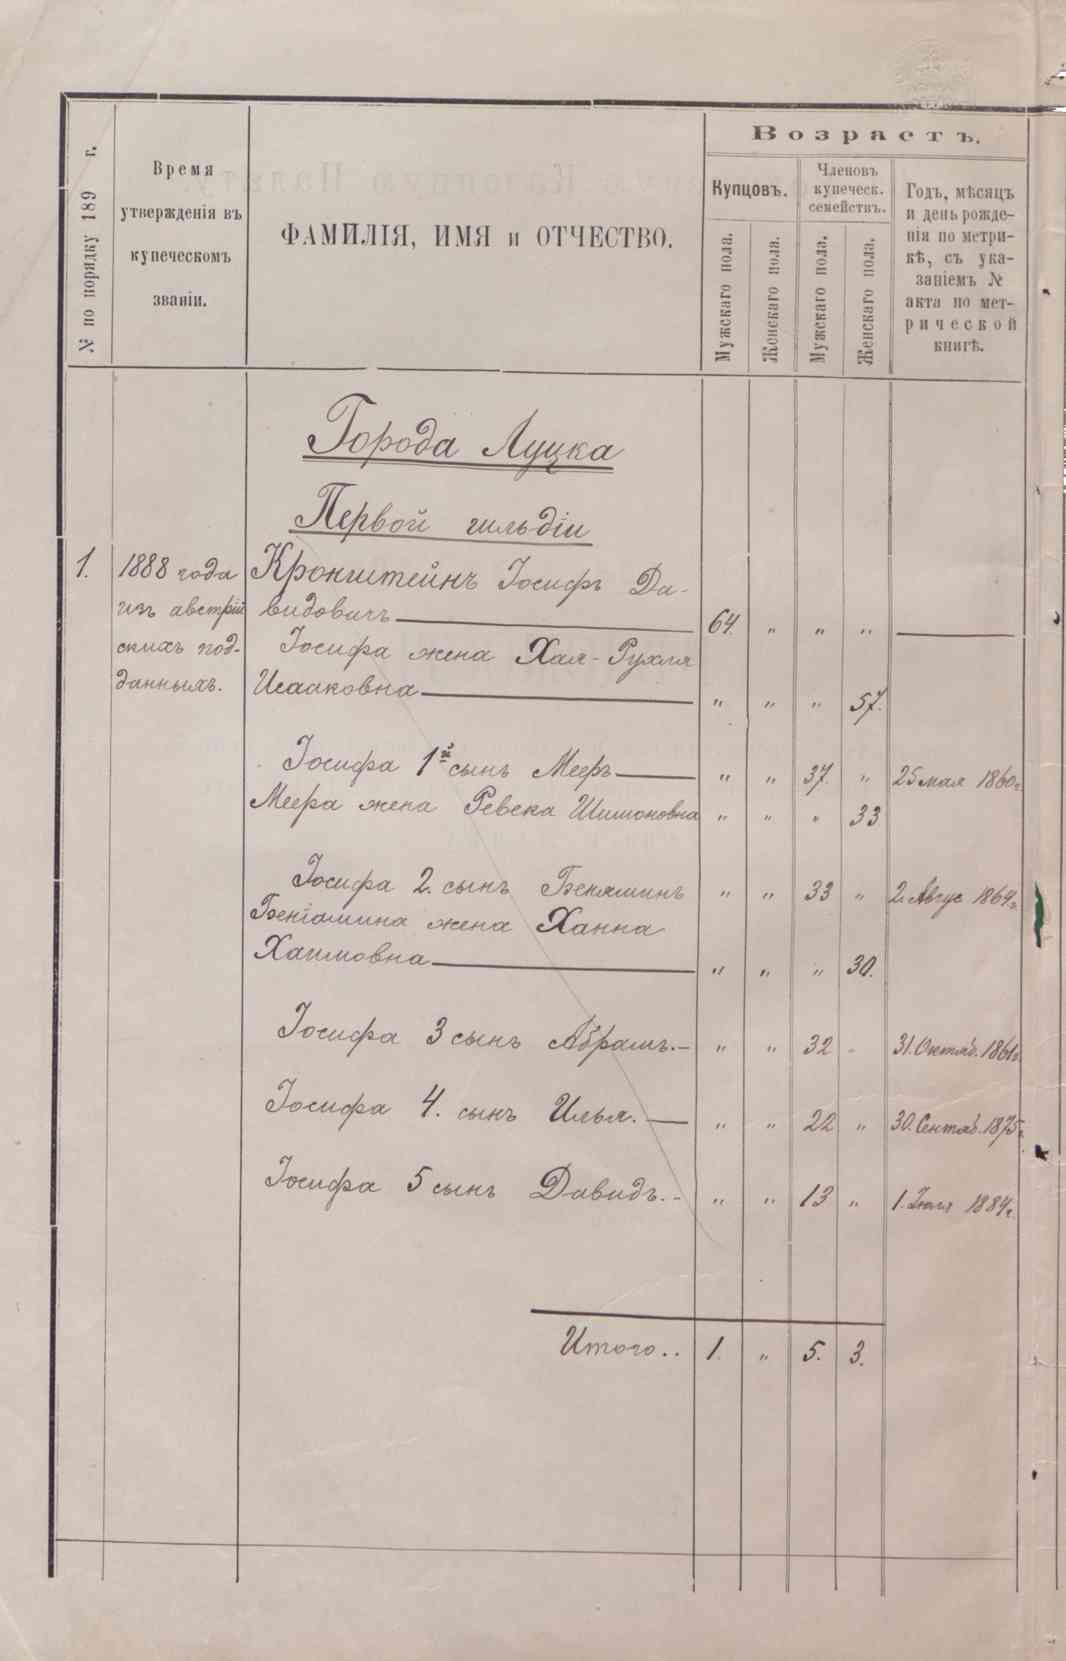 № по порядку 189 г.
Время
утвержденія въ
купеческомъ
званіи.
ФАМИЛІЯ, ИМЯ и ОТЧЕСТВО.
Возрастъ.
Купцовъ.
Мужскаго пола.
Женскаго пола.
Членовъ
купеческ.
семействъ.
Мужскаго пола.
Женскаго пола.
Годъ, мѣсяцъ
и день рожде-
нія по метри-
кѣ, съ ука-
заніемъ №
акта по мет-
рической
книгѣ.
Города Луцка
Первой гильдіи
1. 1888 года Кронштейнъ Іосифъ Да-
изъ австрій видовичъ 64. „ „ „
скихъ под- Іосифа жена Хая-Рухля
данныхъ. Исааковна „ „ „ 57.
Іосифа 1й сынъ Мееръ „ „ 37. „ 25 мая 1860 г.
Меера жена Ревека Шимоновна „ „ „ 33
Іосифа 2. сынъ Беняминъ „ „ 33 „ 2. Авгус 1864 г.
Беніамина жена Ханна
Хаимовна „ „ „ 30.
Іосифа 3 сынъ Абрамъ. „ „ 32 „ 31. Октяб. 1861 г.
Іосифа 4. сынъ Илья. „ „ 22 „ 30. Сентяб. 1875 г.
Іосифа 5 сынъ Давидъ. „ „ 13 „ 1. Іюля 1884 г.
Итого.. 1. „ 5. 3.